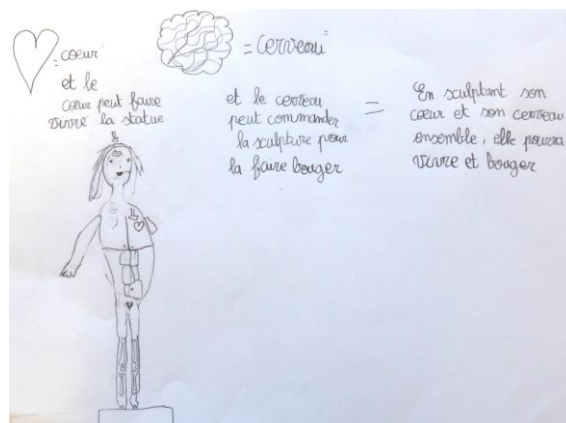 = coeur
et le
coeur peut faire
vivre la statue
= cerveau
et le cerveau
peut commander
la sculpture pour
la faire bouger
=
En sculptant son
coeur et son cerveau
ensemble, elle pourra
vivre et bouger